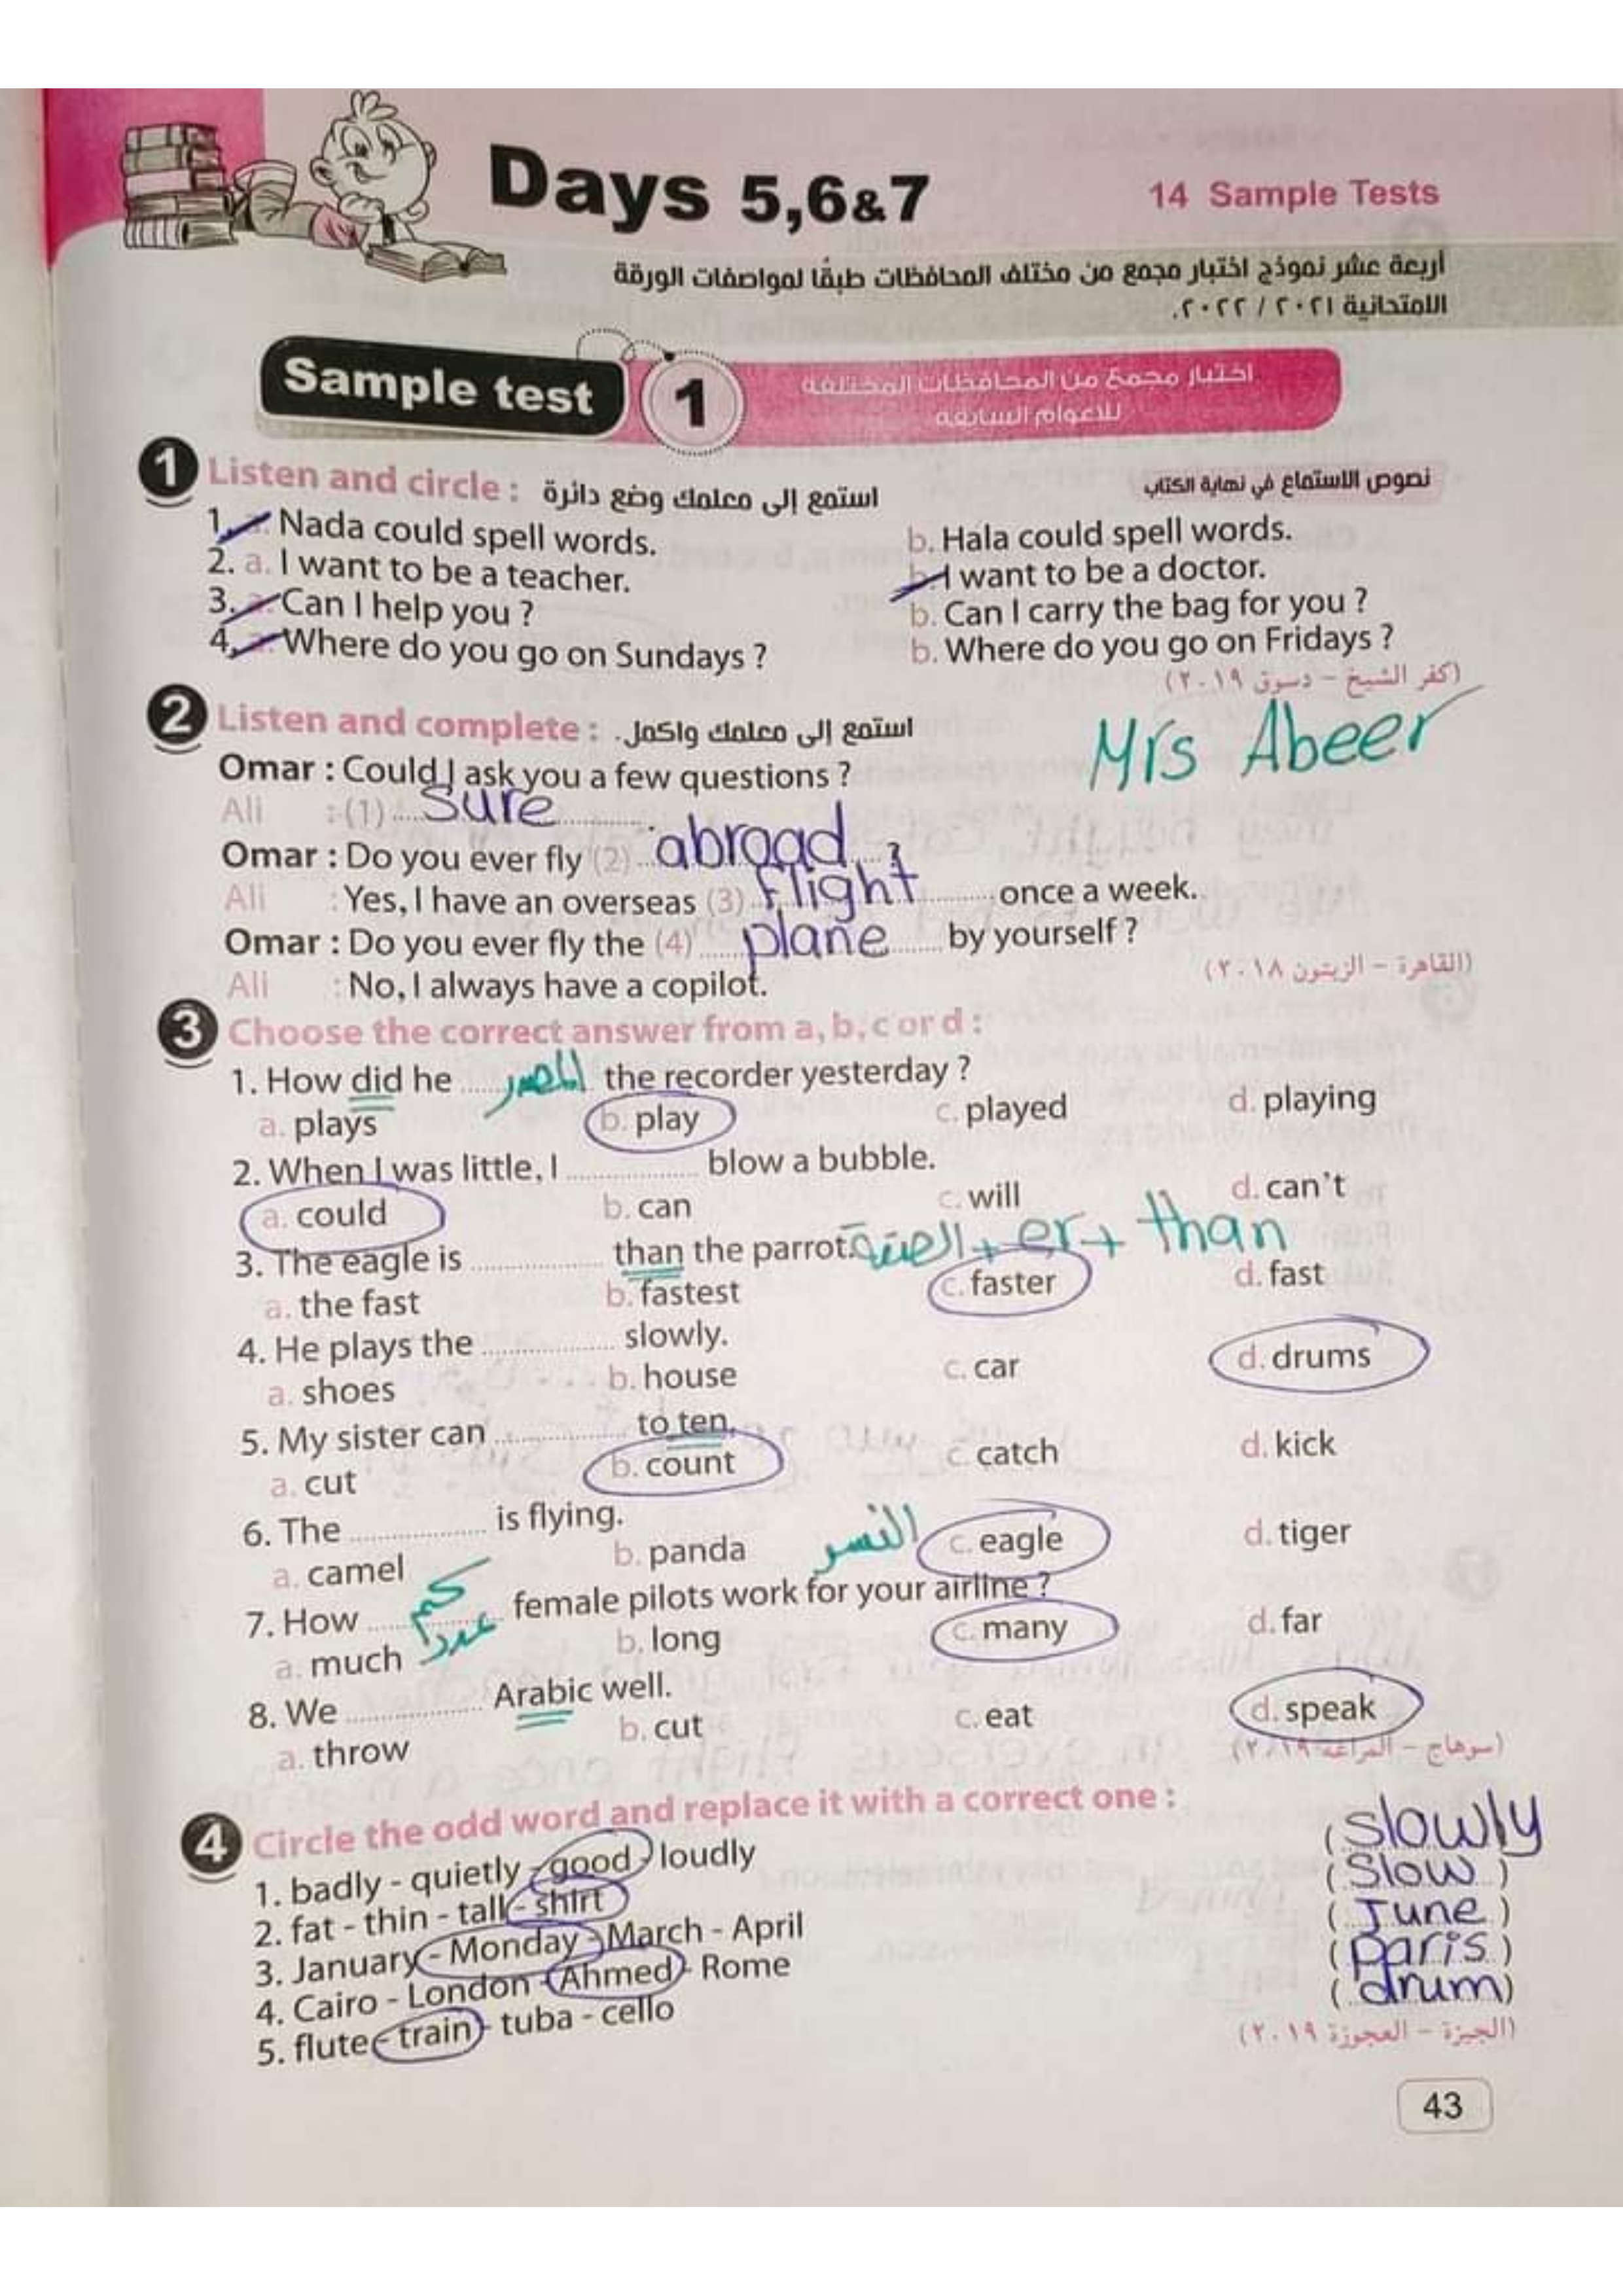 Days 5,6&7
14 Sample Tests
أربعة عشر نموذج اختبار مجمع من مختلف المحافظات طبقًا لمواصفات الورقة
الامتحانية ٢٠٢١ / ٢٠٢٢.
Sample test 1
اختبار مجمع من المحافظات المختلفة
للأعوام السابقة
1 Listen and circle : استمع إلى معلمك وضع دائرة
نصوص الاستماع في نهاية الكتاب
1. a. Nada could spell words. b. Hala could spell words.
2. a. I want to be a teacher. b. I want to be a doctor.
3. a. Can I help you ? b. Can I carry the bag for you ?
4. a. Where do you go on Sundays ? b. Where do you go on Fridays ?
(كفر الشيخ – دسوق ٢٠١٩)
2 Listen and complete : استمع إلى معلمك واكمل.
Mrs Abeer
Omar : Could I ask you a few questions ?
Ali : (1) sure .
Omar : Do you ever fly (2) abroad ?
Ali : Yes, I have an overseas (3) flight once a week.
Omar : Do you ever fly the (4) plane by yourself ?
Ali : No, I always have a copilot.
(القاهرة – الزيتون ٢٠١٨)
3 Choose the correct answer from a, b, c or d :
1. How did he المصدر the recorder yesterday ?
a. plays b. play c. played d. playing
2. When I was little, I ............ blow a bubble.
a. could b. can c. will d. can't
3. The eagle is ............ than the parrot. الصفة + er + than
a. the fast b. fastest c. faster d. fast
4. He plays the ............ slowly.
a. shoes b. house c. car d. drums
5. My sister can ............ to ten.
a. cut b. count c. catch d. kick
6. The ............ is flying.
a. camel b. panda النسر c. eagle d. tiger
7. How كم عدد female pilots work for your airline ?
a. much b. long c. many d. far
8. We ............ Arabic well.
a. throw b. cut c. eat d. speak
(سوهاج – المراغة ٢٠١٩)
4 Circle the odd word and replace it with a correct one :
1. badly - quietly - good - loudly (slowly
2. fat - thin - tall - shirt (slow)
3. January - Monday - March - April (June)
4. Cairo - London - Ahmed - Rome (paris)
5. flute - train - tuba - cello (drum)
(الجيزة – العجوزة ٢٠١٩)
43